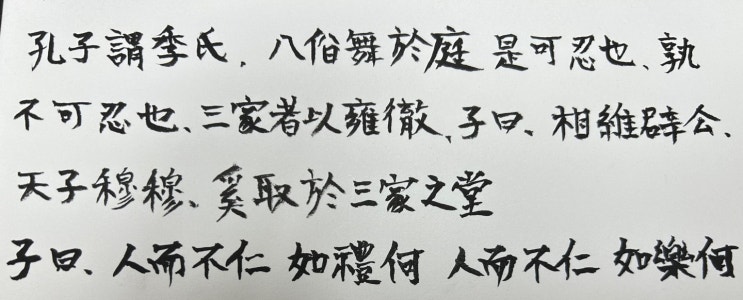 孔子謂季氏．八佾舞於庭 是可忍也、孰
不可忍也、三家者以雍徹、子曰、相維辟公、
天子穆穆、奚取於三家之堂
子曰、人而不仁 如禮何 人而不仁 如樂何